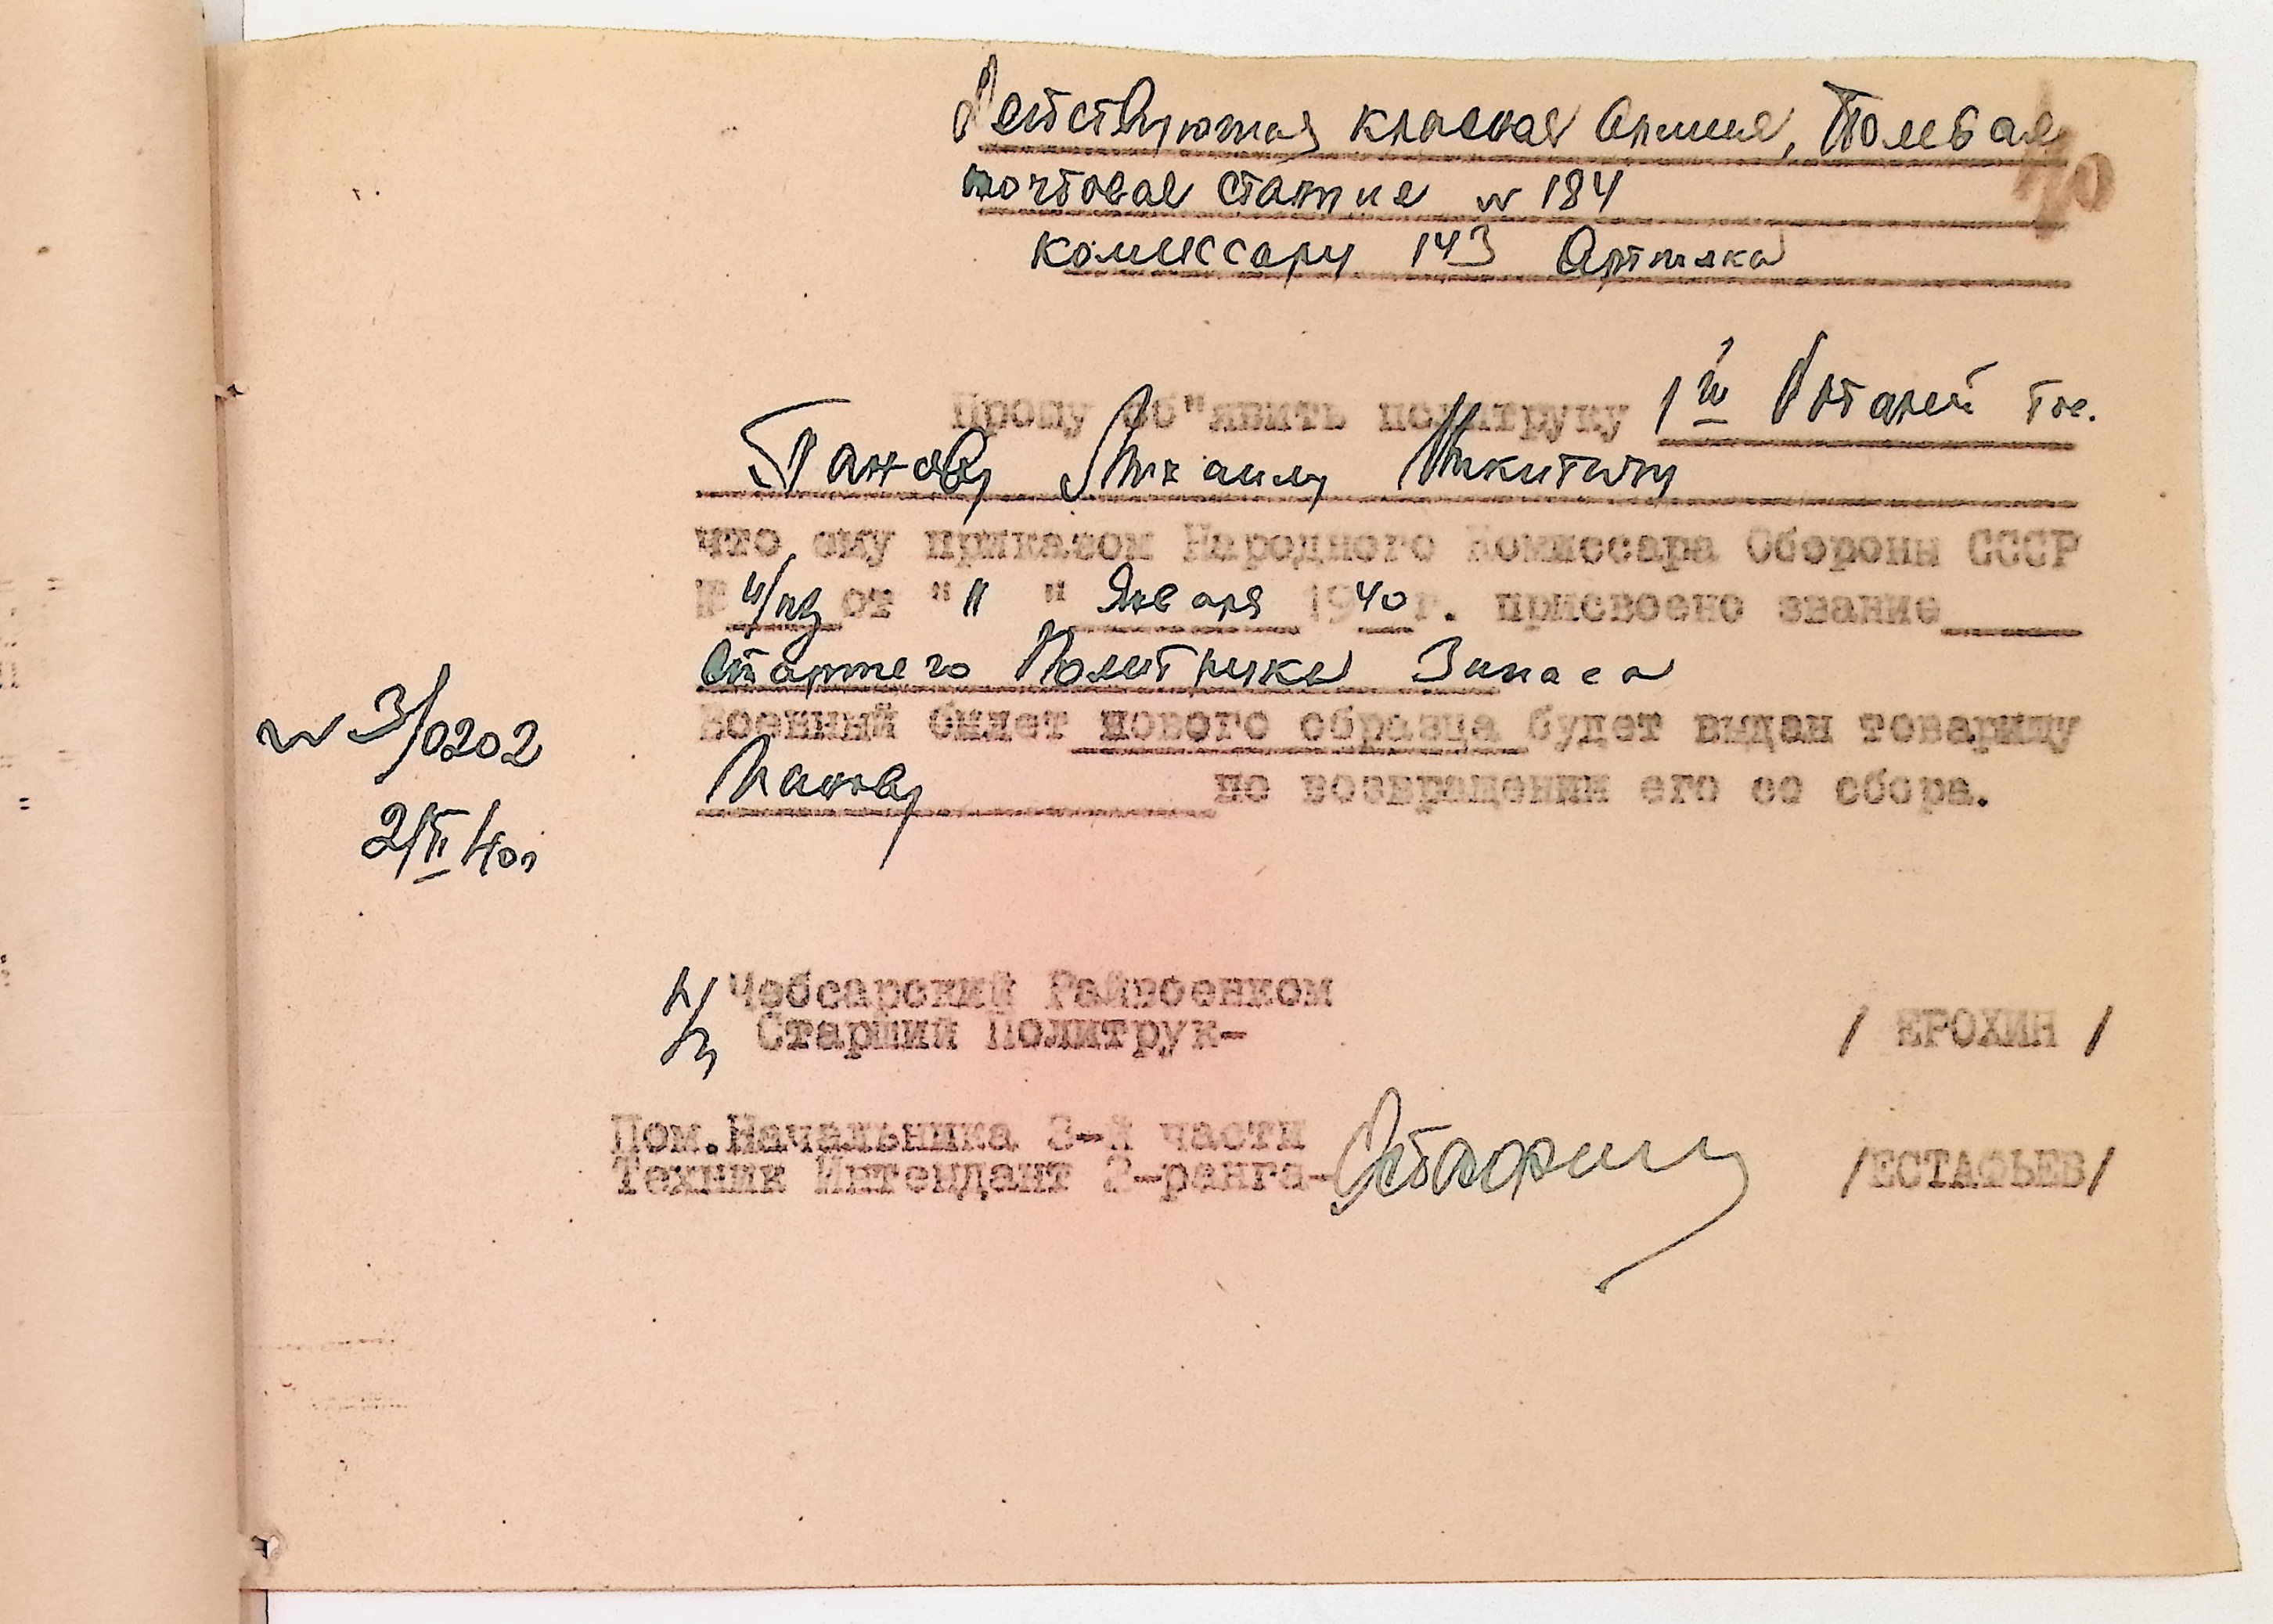 Действующая красная Армия, Полевая
почтовая станция N 184
комиссару 143 Артполка
Прошу об"явить политруку 1й Батареи тов.
Панову Михаилу Никитичу
что ему приказом Народного Комиссара Обороны СССР
№ от " 11 " Января 1940 г. присвоено звание
Старшего Политрука Запаса
Военный билет нового образца будет выдан товарищу
Панову по возвращении его со сбора.
N 3/0202
2/II 40г
п/п Чебсарский Райвоенком
Старший Политрук- / ЕРОХИН /
Пом.Начальника 3-й части
Техник Интендант 2-ранга- /ЕСТАФЬЕВ/